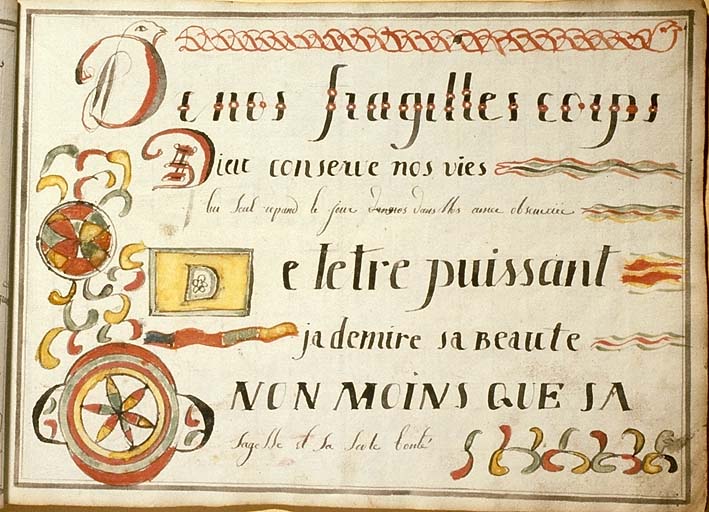 De nos fragilles corps
Dieu conserve nos vies
lui seul repand le jour dans Nos ames obscurcie
De letre puissant
jademire sa Beaute
NON MOINS QUE SA
sagesse et sa seule bonté